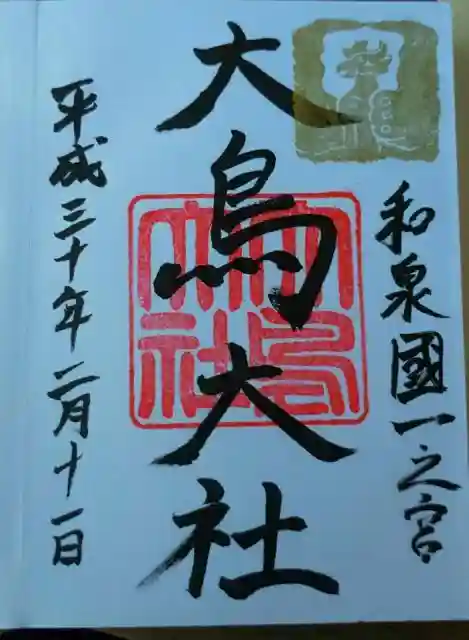 和泉國一之宮
大鳥大社
平成三十年二月十一日